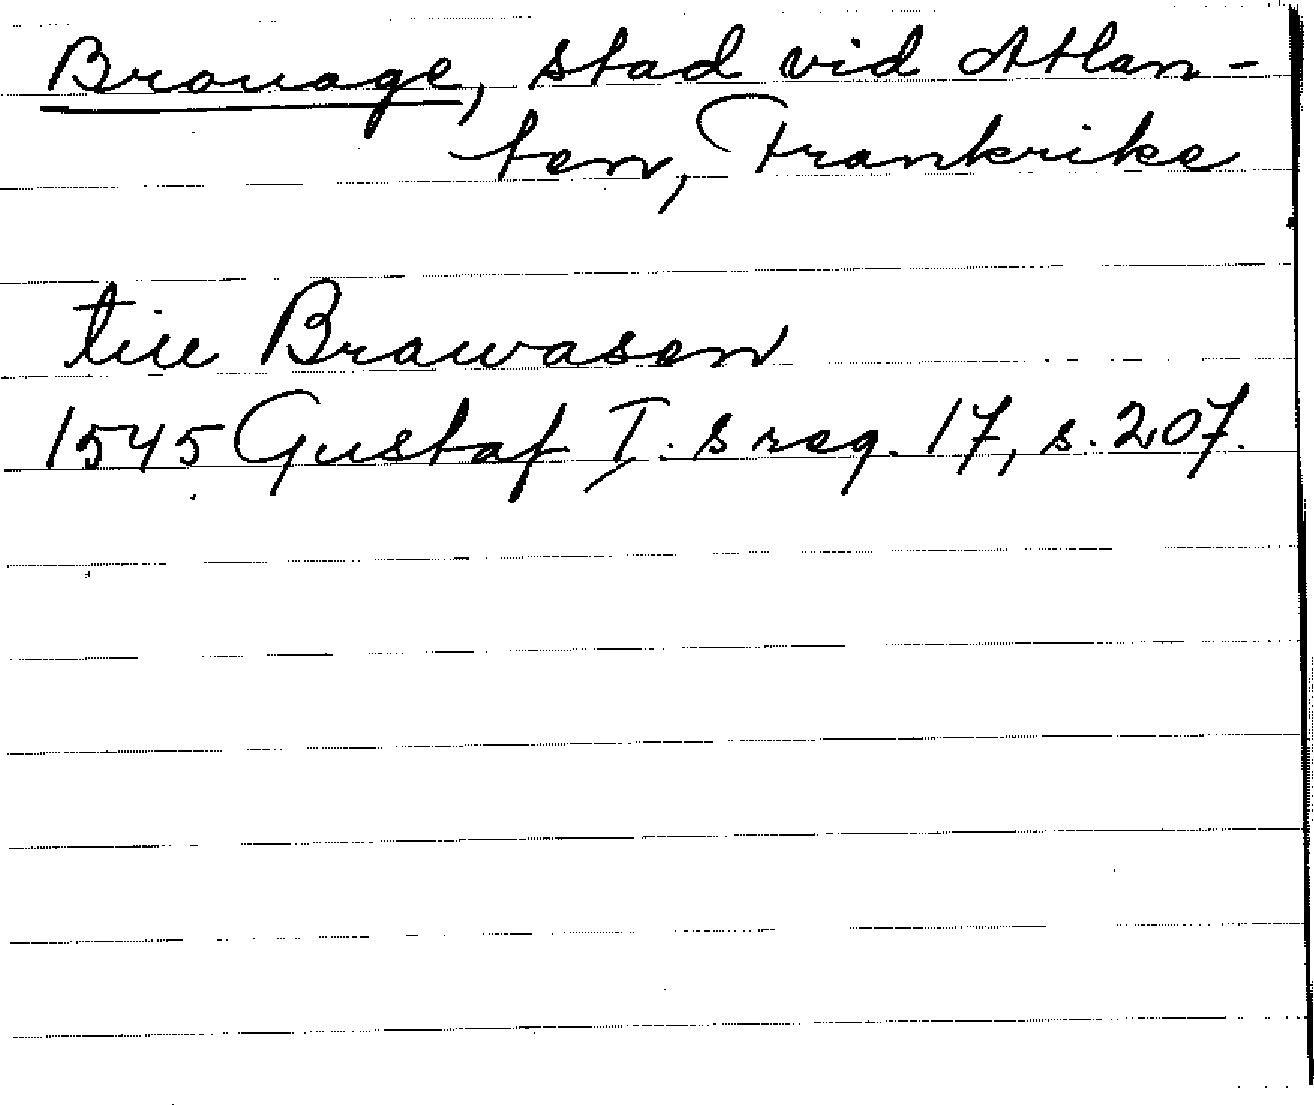 Brouage, stad vid Atlan-
ten, Frankrike
till Brawasen
1545 Gustaf I:s reg. 17, s. 207.